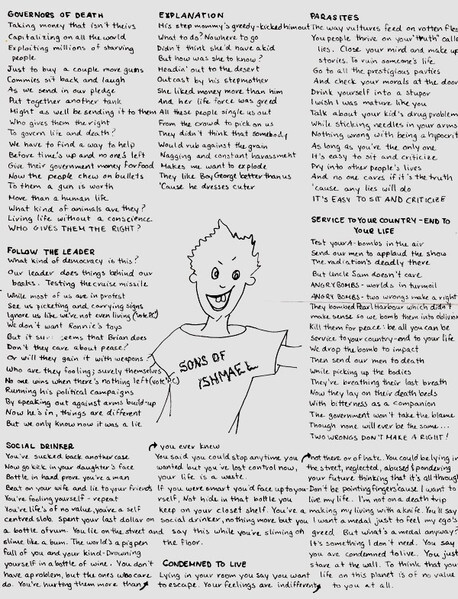 GOVERNORS OF DEATH
Taking money that isn't theirs
Capitalizing on all the world
Exploiting millions of starving
people
Just to buy a couple more guns
Commies sit back and laugh
As we send in our pledge
Put together another tank
Might as well be sending it to them
Who gives them the right?
To govern life and death?
We have to find a way to help
Before time's up and no one's left
Give their government money for food
Now the people chew on bullets
To them a gun is worth
More than a human life
What kind of animals are they?
Living life without a conscience
WHO GIVES THEM THE RIGHT?
FOLLOW THE LEADER
What kind of democracy is this?
Our leader does things behind our
backs. Testing the cruise missile
While most of us are in protest
See us picketing and carrying signs
Ignore us like we're not even living
We don't want Ronnie's toys
But it sure seems that Brian does
Don't they care about peace?
Or will they gain it with weapons
Who are they fooling; surely themselves
No one wins when there's nothing left
Running his political campaigns
By speaking out against arms build-up
Now he's in, things are different
But we only know now it was a lie
EXPLANATION
His step mommy's greedy-kicked him out
What to do? Nowhere to go
Didn't think she'd have a kid
But how was she to know?
Headin' out to the desert
Outcast by his stepmother
She liked money more than him
And her life force was greed
All these people single us out
From the crowd to pick on us
They didn't think that somebody
Would rub against the grain
Nagging and constant harassment
Makes me want to explode
They like Boy George better than us
'Cause he dresses cuter
SONS OF
ISHMAEL
PARASITES
The way vultures feed on rotten flesh
You people thrive on your "truth" called
lies. Close your mind and make up
stories. To ruin someone's life
Go to all the prestigious parties
And check your morals at the door
Drink yourself into a stupor
I wish I was mature like you
Talk about your kid's drug problem
While sticking needles in your arms
Nothing wrong with being a hypocrite
As long as you're the only one
It's easy to sit and criticize
Pry into other people's lives
And no one cares if it's the truth
'cause any lies will do
IT'S EASY TO SIT AND CRITICIZE
SERVICE TO YOUR COUNTRY - END TO
YOUR LIFE
Test your A-bombs in the air
Send our men to applaud the show
The radiation's deadly there
But Uncle Sam doesn't care
ANGRY BOMBS - worlds in turmoil
ANGRY BOMBS - two wrongs make a right
They bombed Pearl Harbour which didn't
make sense so we bomb them into oblivion
Kill them for peace: be all you can be
Service to your country-end to your life
We drop the bomb to impact
Then send our men to death
While picking up the bodies
They're breathing their last breath
Now they lay on their death beds
With bitterness as a companion
The government won't take the blame
Though none will ever be the same...
TWO WRONGS DON'T MAKE A RIGHT!
SOCIAL DRINKER
You've sucked back another case
Now go kick in your daughter's face
Bottle in hand prove you're a man
Beat on your wife and lie to your friends
You're fooling yourself - repeat
You're life's of no value, you're a self
centred slob. Spent your last dollar on
a bottle of rum. You lie on the street and
slime like a bum. The world's a pigpen
full of you and your kind. Drowning
yourself in a bottle of wine. You don't
have a problem, but the ones who care
do. You're hurting them more than
you ever knew
You said you could stop anytime you
wanted but you've lost control now,
your life is a waste.
If you were smart you'd face up to yo-
urself. Not hide in that bottle you
keep on your closet shelf. You're a
social drinker, nothing more but you
say this while you're slming on
the floor.
CONDEMNED TO LIVE
Lying in your room you say you want
to escape. Your feelings are indifferent
not there or of hate. You could be lying in
the street, neglected, abused & pondering
your future thinking that it's all through
Don't be pointing fingers 'cause I want to
live my life. I'm not on a death trip
making my living with a knife. You'll say
I want a medal just to feel my ego's
greed. But what's a medal anyway?
It's something I don't need. You say
you are condemned to live. You just
stare at the wall. To think that your
life on this planet is of no value
to you at all.